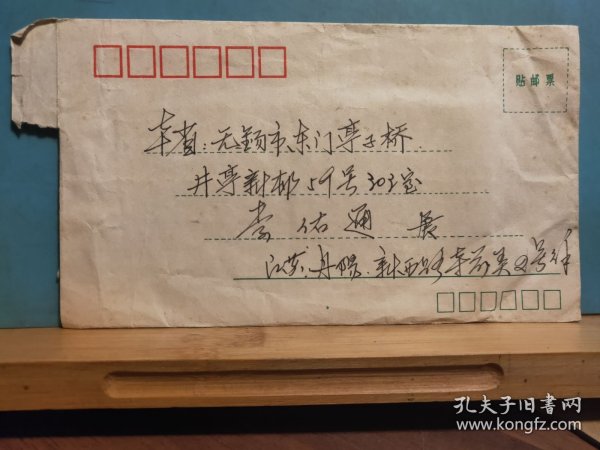 贴邮票
本省：无锡市东门亭子桥
井亭新村59号303室
李佑通 展
江苏丹阳新西路
孔夫子旧书网
www.kongfz.com